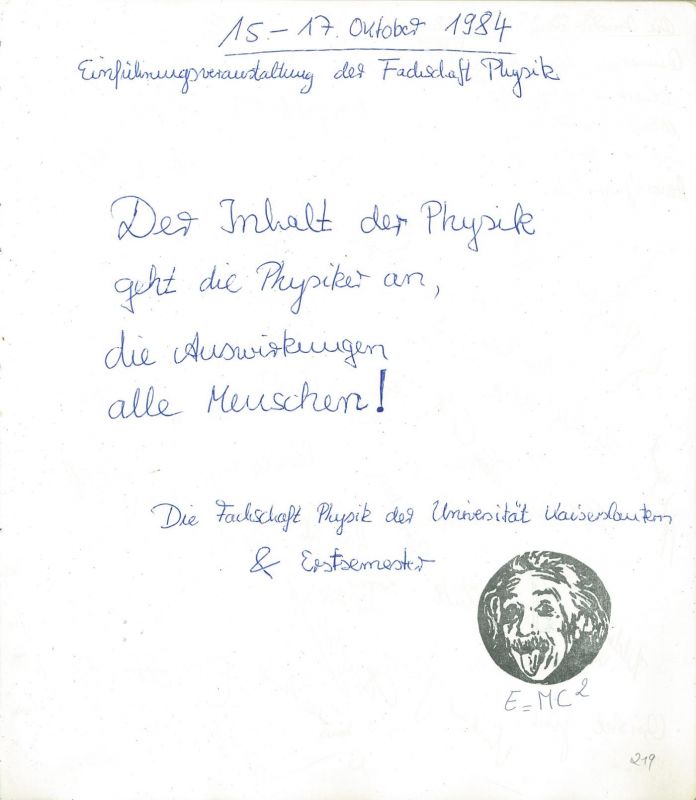 15 – 17. Oktober 1984
Einführungsveranstaltung der Fachschaft Physik
Der Inhalt der Physik
geht die Physiker an,
die Auswirkungen
alle Menschen!
Die Fachschaft Physik der Universität Kaiserslautern
& Erstsemester
E=MC²
219